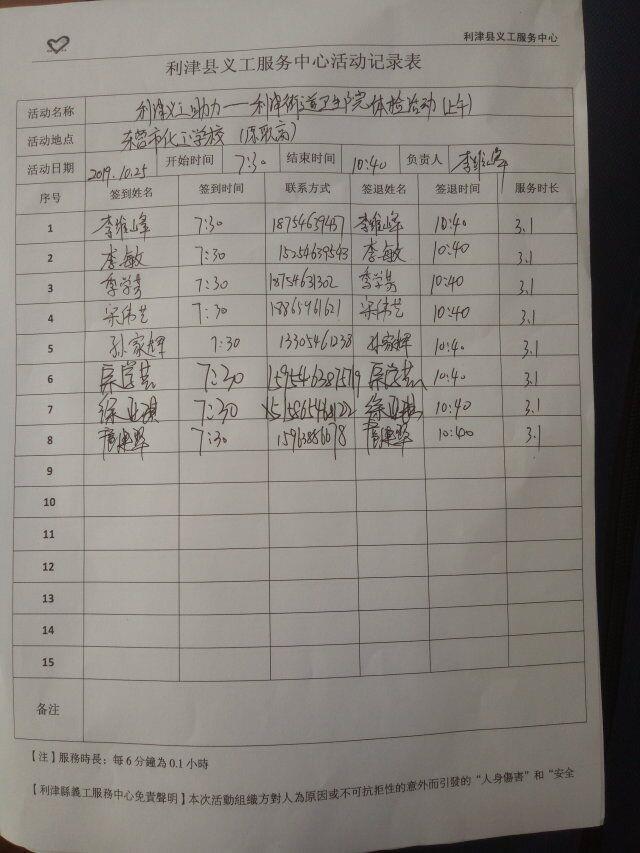 利津县义工服务中心
利津县义工服务中心活动记录表
活动名称 利津义工助力——利津街道卫生院体检活动(上午)
活动地点 东营市化工学校(原职高)
活动日期 2019.10.25 开始时间 7:30 结束时间 10:40 负责人 李维峰
序号 签到姓名 签到时间 联系方式 签退姓名 签退时间 服务时长
1 李维峰 7:30 李维峰 10:40 3.1
2 李敏 7:30 15254639543 李敏 10:40 3.1
3 李学芳 7:30 18754631302 李学芳 10:40 3.1
4 宋伟艺 7:30 宋伟艺 10:40 3.1
5 孙家辉 7:30 13305461238 孙家辉 10:40 3.1
6 7:30 10:40 3.1
7 徐亚琪 7:30 徐亚琪 10:40 3.1
8 7:30 10:40 3.1
9
10
11
12
13
14
15
备注
【注】服務時長：每6分鐘為0.1小時
【利津縣義工服務中心免責聲明】本次活動組織方對人為原因或不可抗拒性的意外而引發的“人身傷害”和“安全